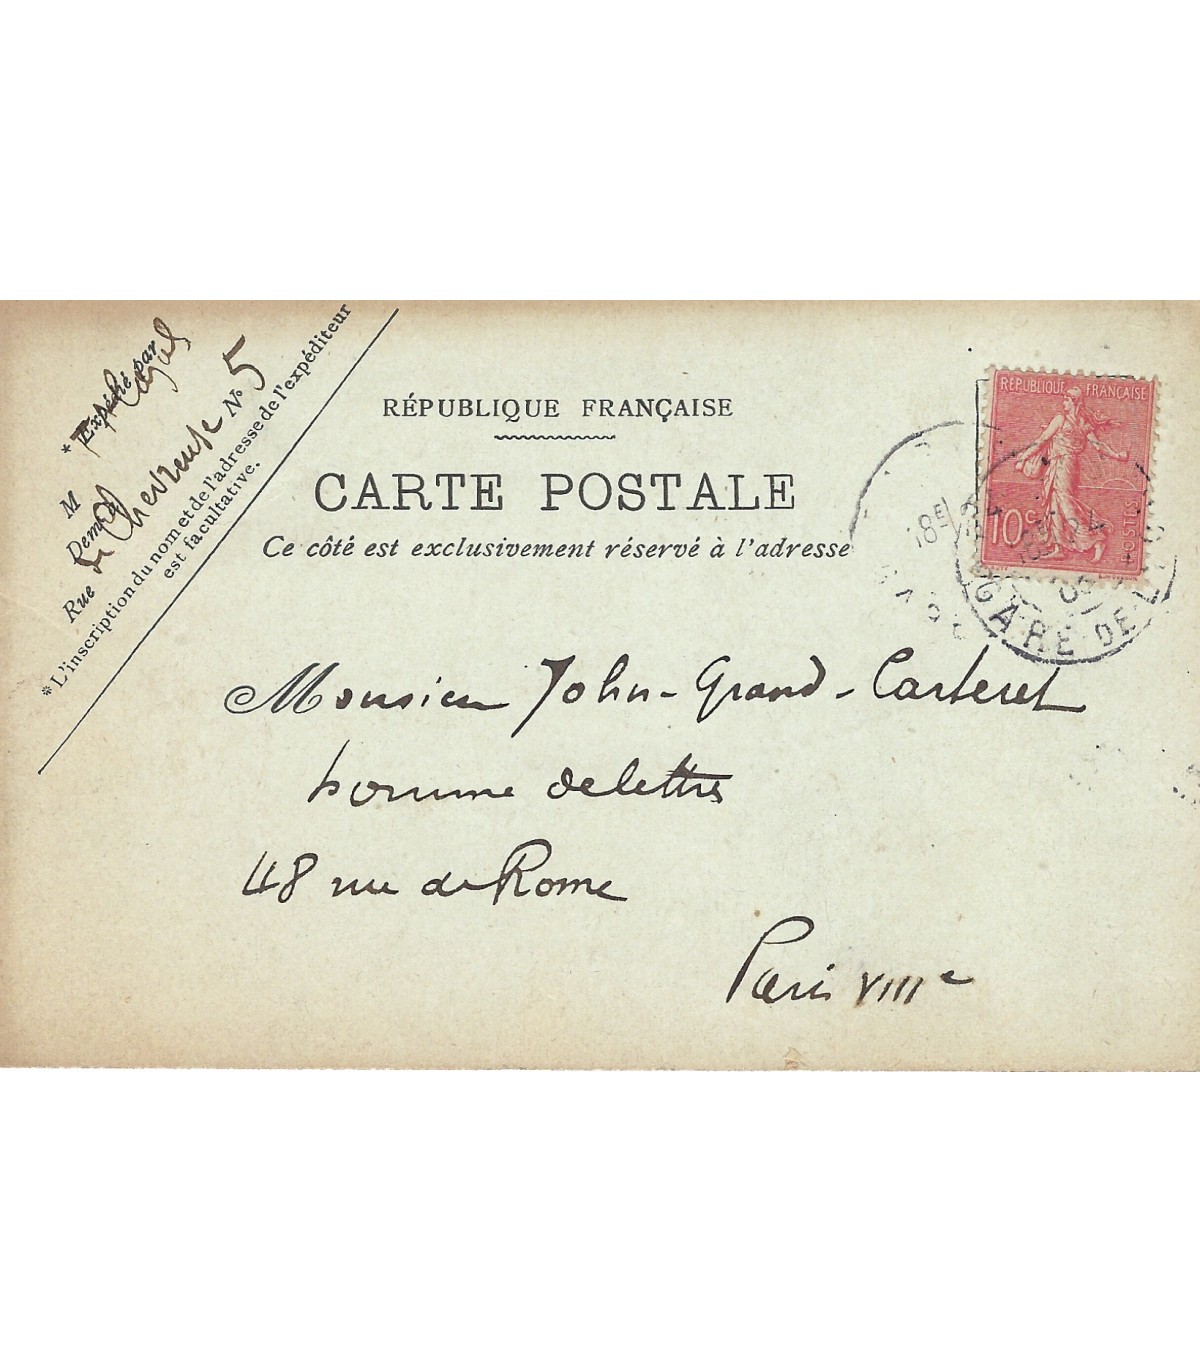 * Expédié par
M
Demt
Rue de Chevreuse No 5
*L'inscription du nom et de l'adresse de l'expéditeur
est facultative.
RÉPUBLIQUE FRANÇAISE
CARTE POSTALE
Ce côté est exclusivement réservé à l'adresse
RÉPUBLIQUE FRANÇAISE
10c
POSTES
18E
GARE DE L
Monsieur John-Grand-Carteret
homme de lettres
48 rue de Rome
Paris VIIIe